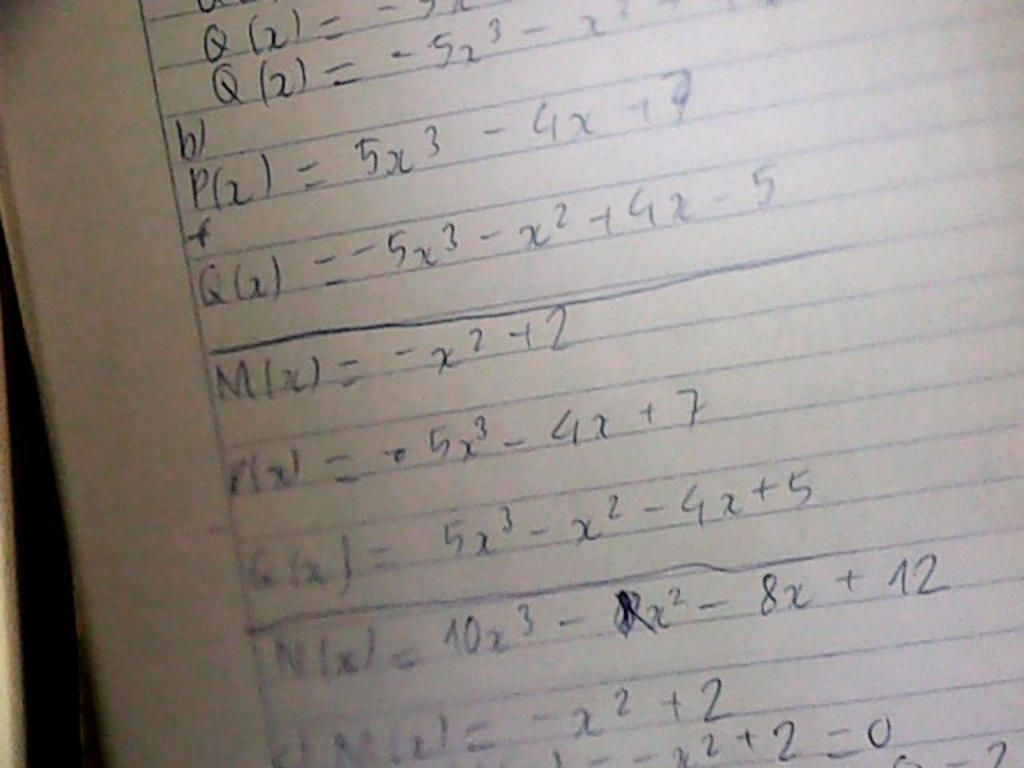 Q(x) = -5x
Q(x) = -5x³ - x²
b)
P(x) = 5x³ - 4x + 7
+
Q(x) = -5x³ - x² + 4x - 5
M(x) = -x² + 2
P(x) = 5x³ - 4x + 7
Q(x) = 5x³ - x² - 4x + 5
N(x) = 10x³ - x² - 8x + 12
c) M(x) = -x² + 2
= -x² + 2 = 0